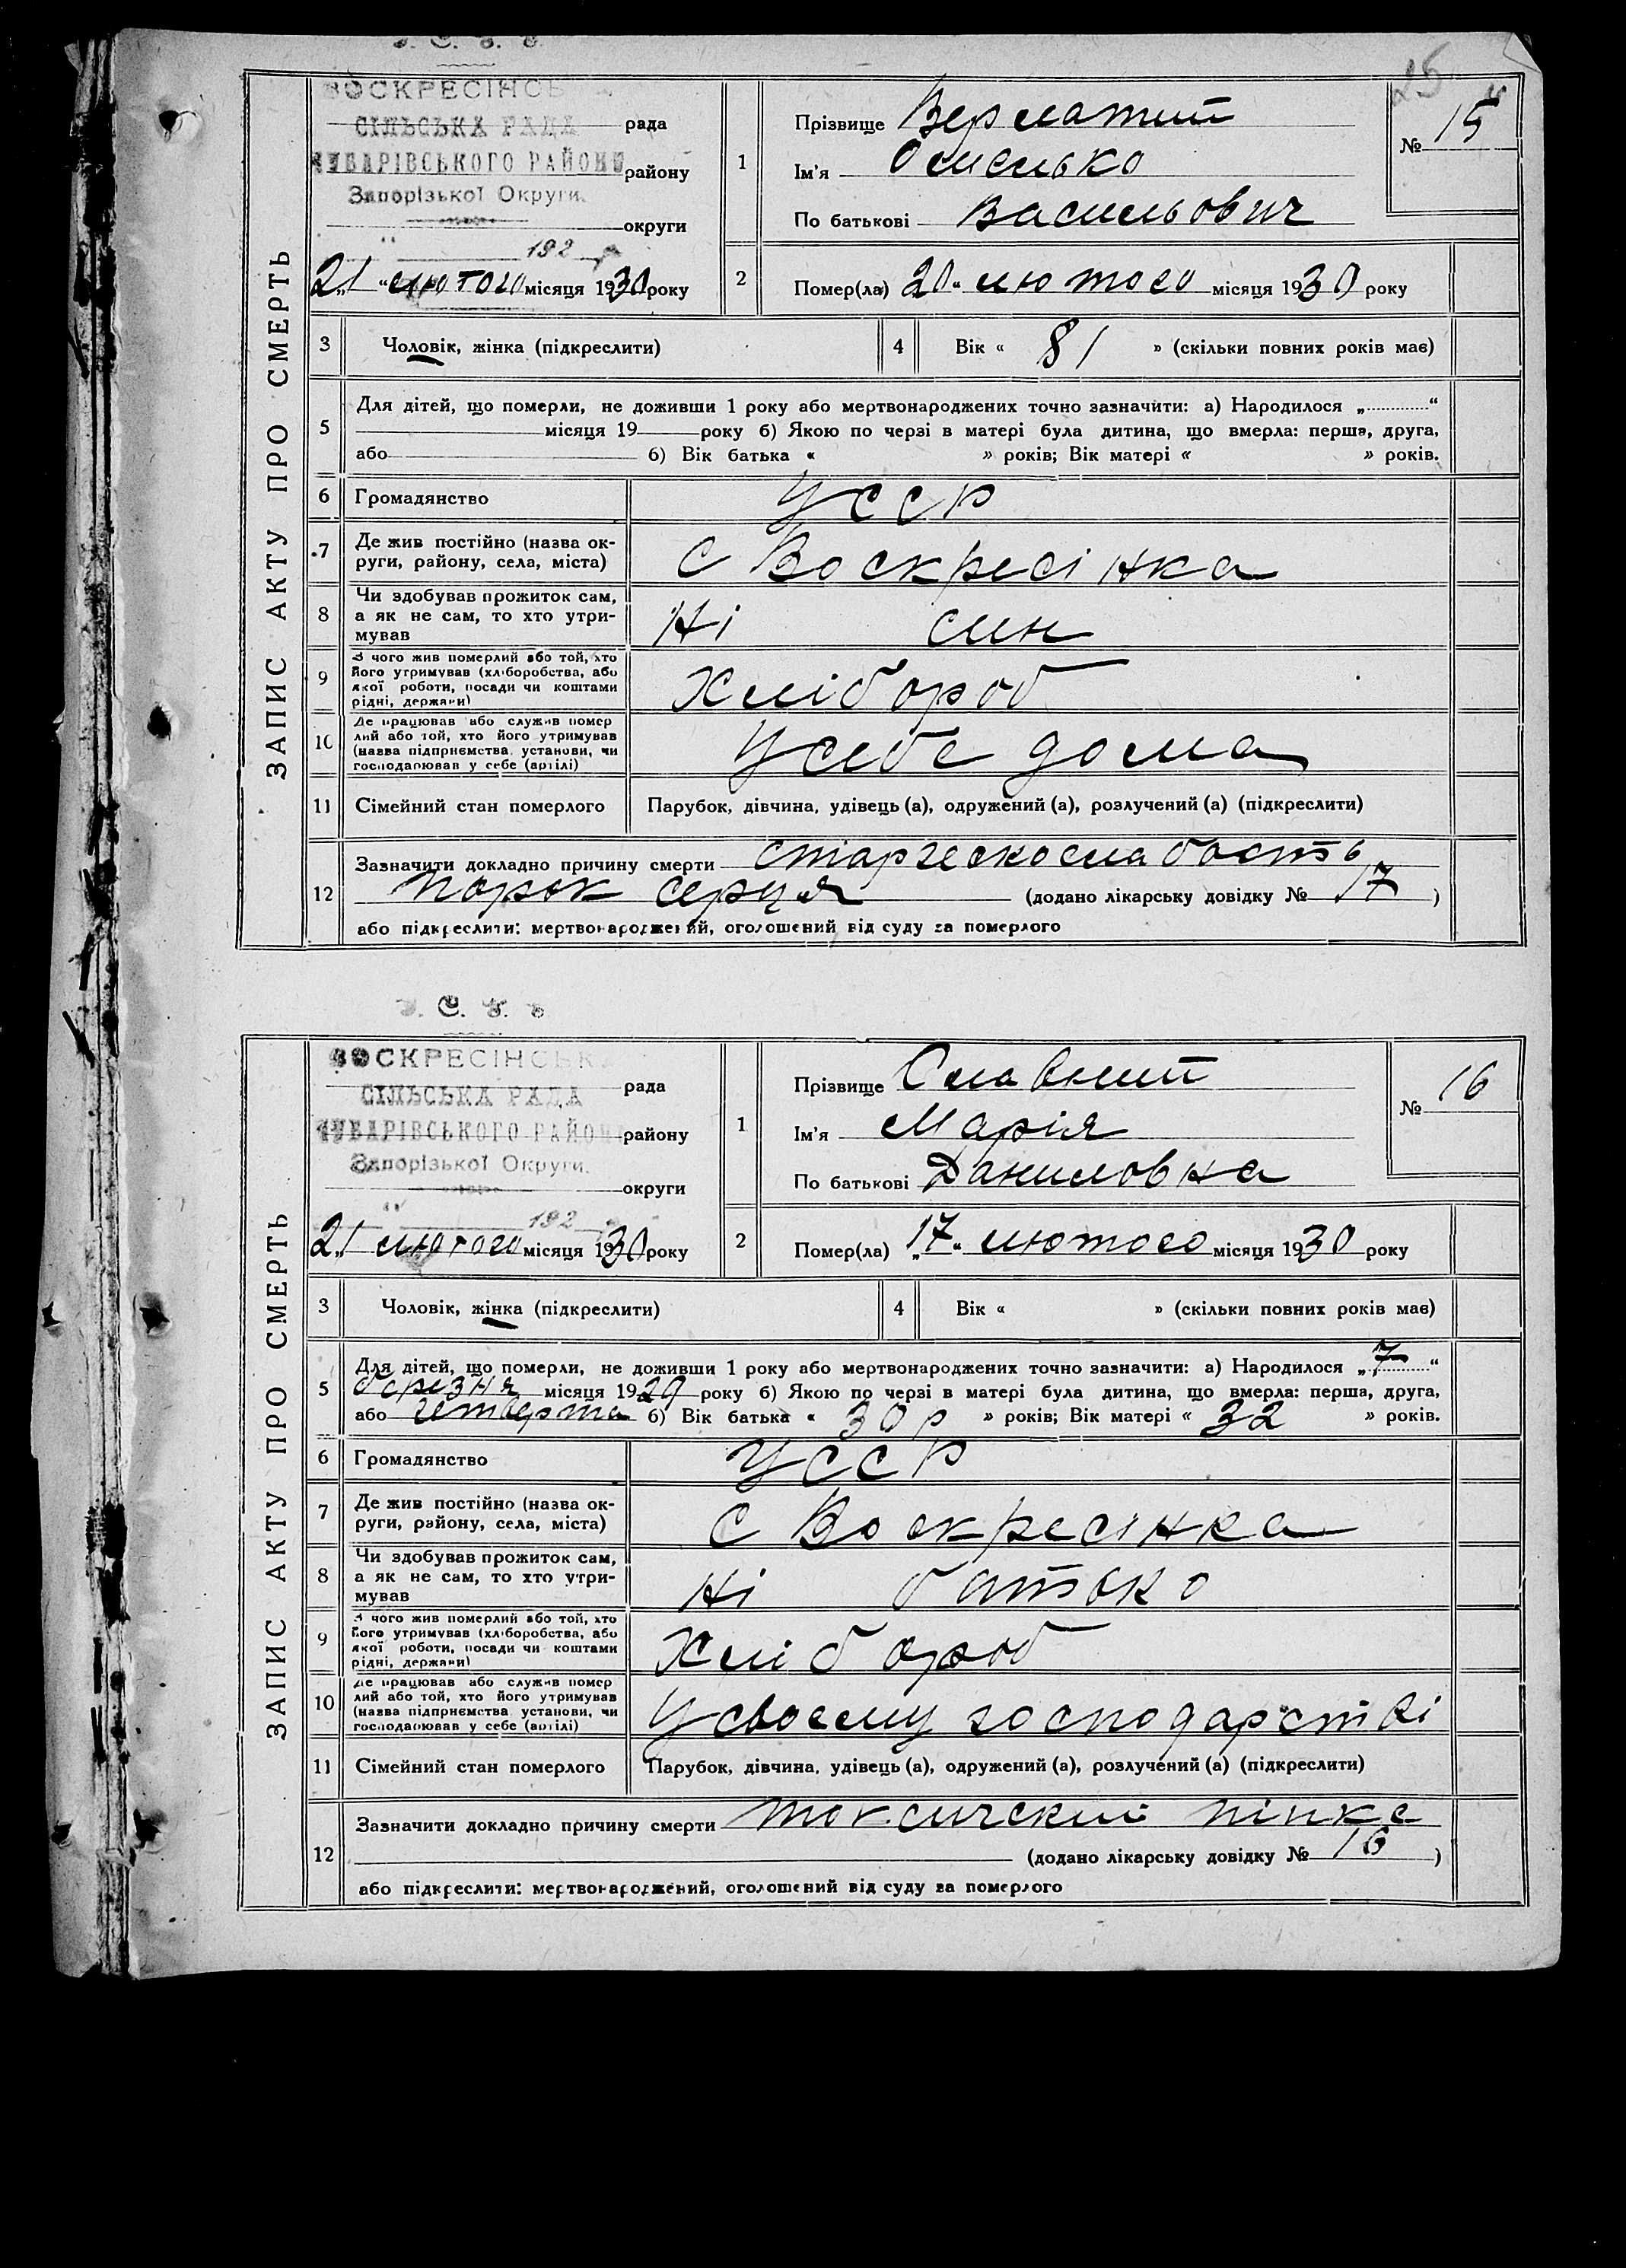 25
ЗАПИС АКТУ ПРО СМЕРТЬ
ВОСКРЕСІНСЬ
СІЛЬСЬКА РАДА рада
ЧУБАРІВСЬКОГО РАЙОНУ району
Запорізької Округи.
округи
192
„21“ лютого місяця 1930 року
1 Прізвище Верлатий
Ім'я Омелько
По батькові Васильович
№ 15
2 Помер(ла) 20 „ лютого місяця 1930 року
3 Чоловік, жінка (підкреслити)
4 Вік « 81 » (скільки повних років має)
5 Для дітей, що померли, не доживши 1 року або мертвонароджених точно зазначити: а) Народилося „............“
місяця 19 року б) Якою по черзі в матері була дитина, що вмерла: перша, друга,
або б) Вік батька « » років; Вік матері « » років.
6 Громадянство УССР
7 Де жив постійно (назва ок-
руги, району, села, міста) С Воскресінка
8 Чи здобував прожиток сам,
а як не сам, то хто утри-
мував Ні син
9 З чого жив померлий або той, хто
його утримував (хліборобства, або
якої роботи, посади чи коштами
рідні, держави) Хлібороб
10 Де працював або служив помер
лий або той, хто його утримував
(назва підприємства, установи, чи
господарював у себе (артілі) У себе дома
11 Сімейний стан померлого Парубок, дівчина, удівець (а), одружений (а), розлучений (а) (підкреслити)
12 Зазначити докладно причину смерти старческослабость
порок серця (додано лікарську довідку № 17 )
або підкреслити: мертвонароджений, оголошений від суду за померлого
ЗАПИС АКТУ ПРО СМЕРТЬ
ВОСКРЕСІНСЬК
СІЛЬСЬКА РАДА рада
ЧУБАРІВСЬКОГО РАЙОН району
Запорізької Округи.
округи
192
„21 лютого місяця 1930 року
1 Прізвище Славний
Ім'я Марія
По батькові Даниловна
№ 16
2 Помер(ла) „17„ лютого місяця 1930 року
3 Чоловік, жінка (підкреслити)
4 Вік « » (скільки повних років має)
5 Для дітей, що померли, не доживши 1 року або мертвонароджених точно зазначити: а) Народилося „7“
березня місяця 1929 року б) Якою по черзі в матері була дитина, що вмерла: перша, друга,
або четверта б) Вік батька « 30 р » років; Вік матері « 32 » років.
6 Громадянство УССР
7 Де жив постійно (назва ок-
руги, району, села, міста) С Воскресінка
8 Чи здобував прожиток сам,
а як не сам, то хто утри-
мував Ні батько
9 З чого жив померлий або той, хто
його утримував (хліборобства, або
якої роботи, посади чи коштами
рідні, держави) Хлібороб
10 Де працював або служив помер
лий або той, хто його утримував
(назва підприємства, установи, чи
господарював у себе (артілі) У своему господарстві
11 Сімейний стан померлого Парубок, дівчина, удівець (а), одружений (а), розлучений (а) (підкреслити)
12 Зазначити докладно причину смерти токсический
(додано лікарську довідку № 16 )
або підкреслити: мертвонароджений, оголошений від суду за померлого